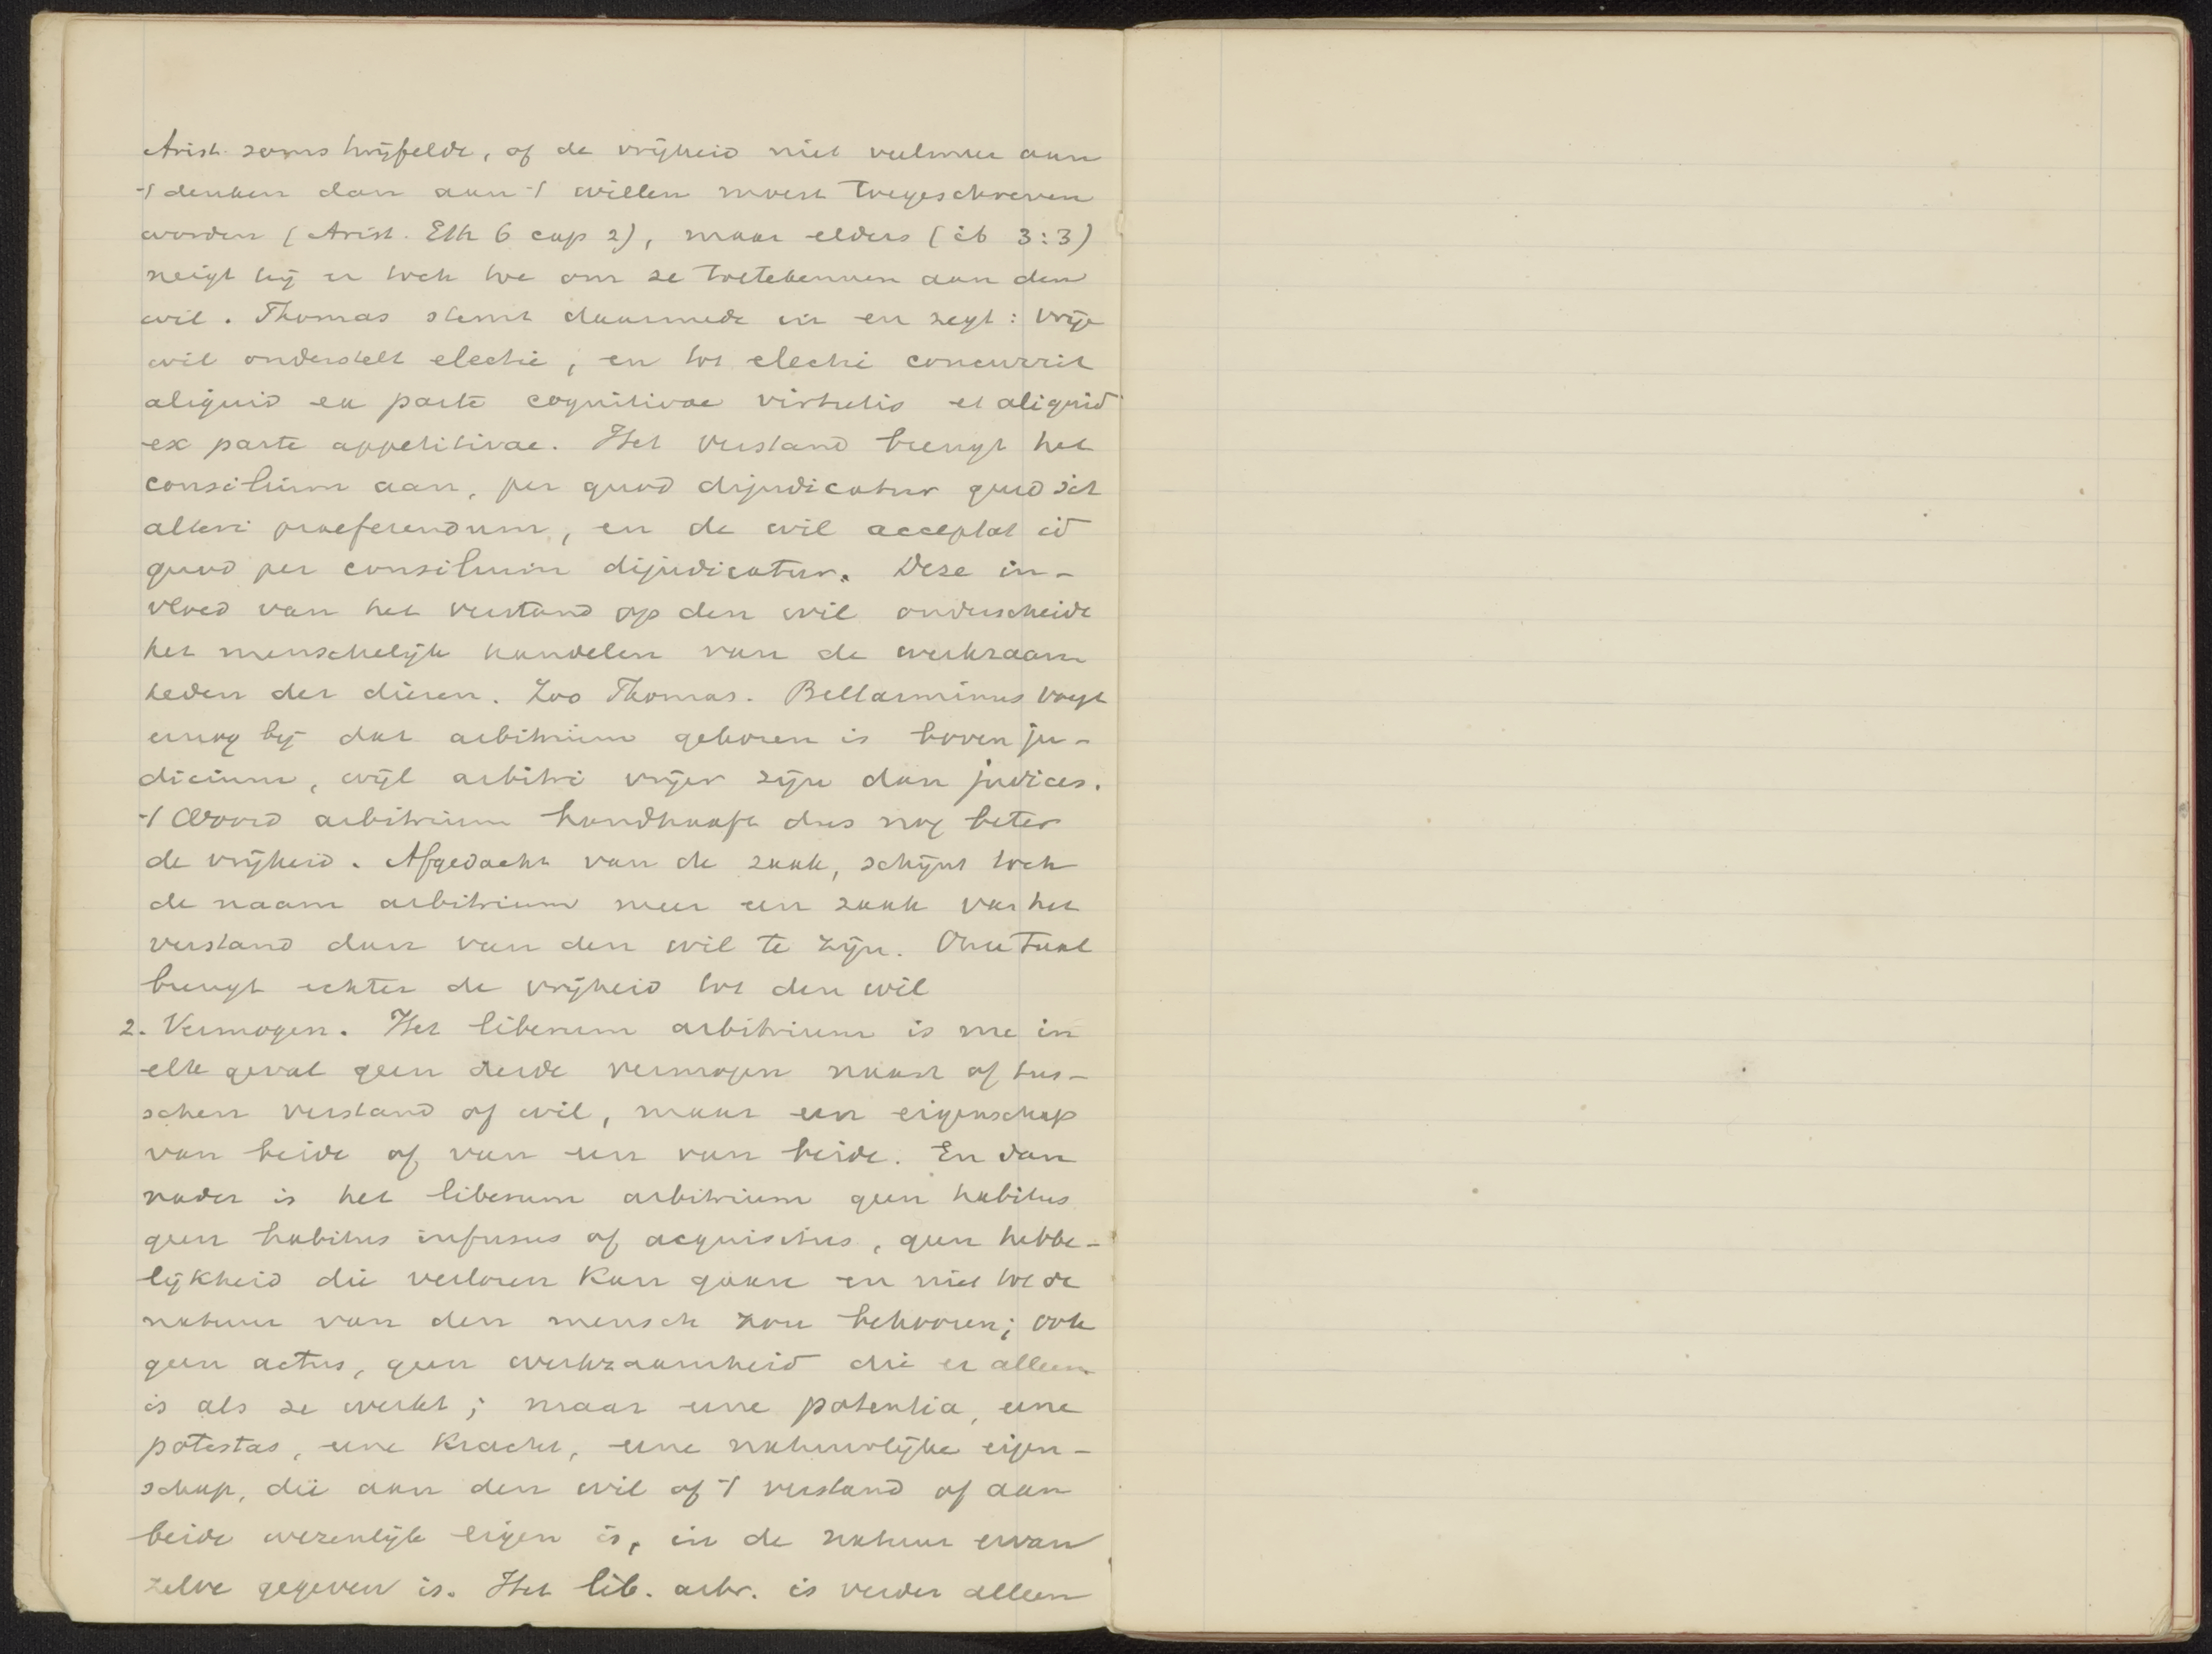 Arist. soms twijfelde, of de vrijheid niet veelmeer aan
't denken dan aan 't willen moest toegeschreven
worden (Arist. Eth 6 cap 2), maar elders (ib 3:3)
neigt hij er toch toe om ze toetekennen aan den
wil. Thomas stemt daarmede in en zegt: vrije
wil onderstelt electie, en tot electie concurrit
aliquid ex parte cognitivae virtutis et aliquid
ex parte appetitivae. Het verstand brengt het
consilium aan, per quod dijudicatur quid sit
alteri praeferendum, en de wil acceptat id
quod per consilium dijudicatur. Deze in-
vloed van het verstand op den wil onderscheidt
het menschelijk handelen van de werkzaam
heden der dieren. Zoo Thomas. Bellarminus voegt
er nog bij dat arbitrium gekozen is boven ju-
dicium, wijl arbitri vrijer zijn dan judices.
't Woord arbitrium handhaaft dus nog beter
de vrijheid. Afgedacht van de zaak, schijnt toch
de naam arbitrium meer een zaak van het
verstand dan van den wil te zijn. Onze taal
brengt echter de vrijheid tot den wil
2. Vermogen. Het liberum arbitrium is nu in
elk geval geen derde vermogen naast of tus-
schen verstand of wil, maar een eigenschap
van beide of van een van beide. En dan
nader is het liberum arbitrium geen habitus
geen habitus infusus of acquisitus, geen hebbe-
lijkheid die verloren kan gaan en niet tot de
natuur van den mensch zou behooren; ook
geen actus, geen werkzaamheid die er alleen
is als ze werkt; maar eene potentia, eene
potestas, eene kracht, eene natuurlijke eigen-
schap, die aan den wil of 't verstand of aan
beide wezenlijk eigen is, in de natuur ervan
zelve gegeven is. Het lib. arbr. is verder alleen